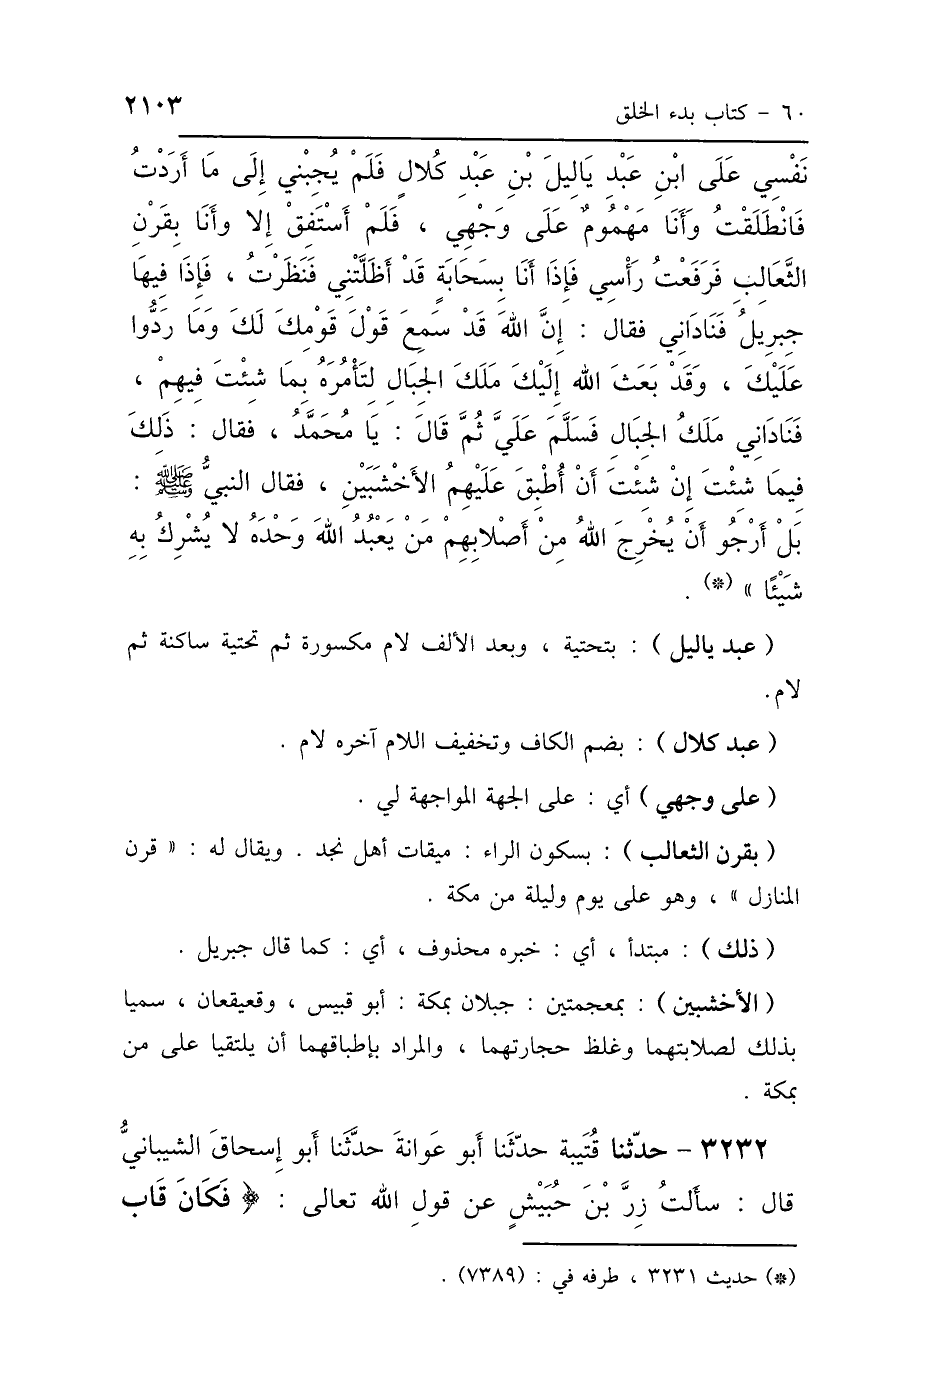 ٦٠ - كتاب بدء الخلق ٢١٠٣
نَفْسِي عَلَى ابْنِ عَبْدِ يَالِيلَ بْنِ عَبْدِ كُلالٍ فَلَمْ يُجِبْنِي إِلَى مَا أَرَدْتُ
فَانْطَلَقْتُ وَأَنَا مَهْمُومٌ عَلَى وَجْهِي ، فَلَمْ أَسْتَفِقْ إِلا وأَنَا بِقَرْنِ
الثَّعَالِبِ فَرَفَعْتُ رَأْسِي فَإِذَا أَنَا بِسَحَابَةٍ قَدْ أَظَلَّتْنِي فَنَظَرْتُ ، فَإِذَا فِيهَا
جِبرِيلُ فَنَادَانِي فقال : إِنَّ اللهَ قَدْ سَمِعَ قَوْلَ قَوْمِكَ لَكَ وَمَا رَدُّوا
عَلَيْكَ ، وَقَدْ بَعَثَ الله إِلَيْكَ مَلَكَ الجِبَالِ لتَأْمُرَهُ بِمَا شئْتَ فِيهِمْ ،
فَنَادَانِي مَلَكُ الجِبَالِ فَسَلَّمَ عَلَيَّ ثُمَّ قَالَ : يَا مُحَمَّدُ ، فقال : ذَلِكَ
فِيمَا شئْتَ إِنْ شئْتَ أَنْ أُطْبِقَ عَلَيْهِمُ الأَخْشَبَيْنِ ، فقال النبيُّ ﷺ :
بَلْ أَرْجُو أَنْ يُخْرِجَ اللهُ مِنْ أَصْلابِهِمْ مَنْ يَعْبُدُ اللهَ وَحْدَهُ لا يُشْرِكُ بِهِ
شَيْئًا » (*) .
( عبد ياليل ) : بتحتية ، وبعد الألف لام مكسورة ثم تحتية ساكنة ثم
لام.
( عبد كلال ) : بضم الكاف وتخفيف اللام آخره لام .
( على وجهي ) أي : على الجهة المواجهة لي .
( بقرن الثعالب ) : بسكون الراء : ميقات أهل نجد . ويقال له : « قرن
المنازل » ، وهو على يوم وليلة من مكة .
( ذلك ) : مبتدأ ، أي : خبره محذوف ، أي : كما قال جبريل .
( الأخشبين ) : بمعجمتين : جبلان بمكة : أبو قبيس ، وقعيقعان ، سميا
بذلك لصلابتهما وغلظ حجارتهما ، والمراد بإطباقهما أن يلتقيا على من
بمكة .
٣٢٣٢ - حدّثنا قُتَيبة حدّثَنا أبو عَوانةَ حدَّثَنا أَبو إِسحاقَ الشيبانيُّ
قال : سألتُ زِرَّ بْنَ حُبَيْشٍ عن قولِ الله تعالى : ﴿ فَكَانَ قَابَ
(*) حديث ٣٢٣١ ، طرفه في : (٧٣٨٩) .